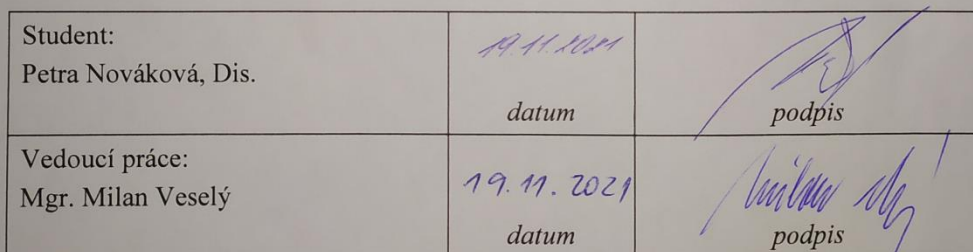 Student:
Petra Nováková, Dis.
19.11.2021
datum
podpis
Vedoucí práce:
Mgr. Milan Veselý
19.11.2021
datum
podpis